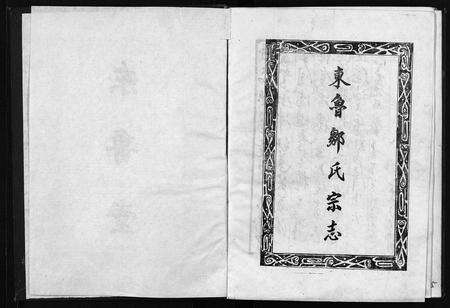 東魯鄒氏宗志